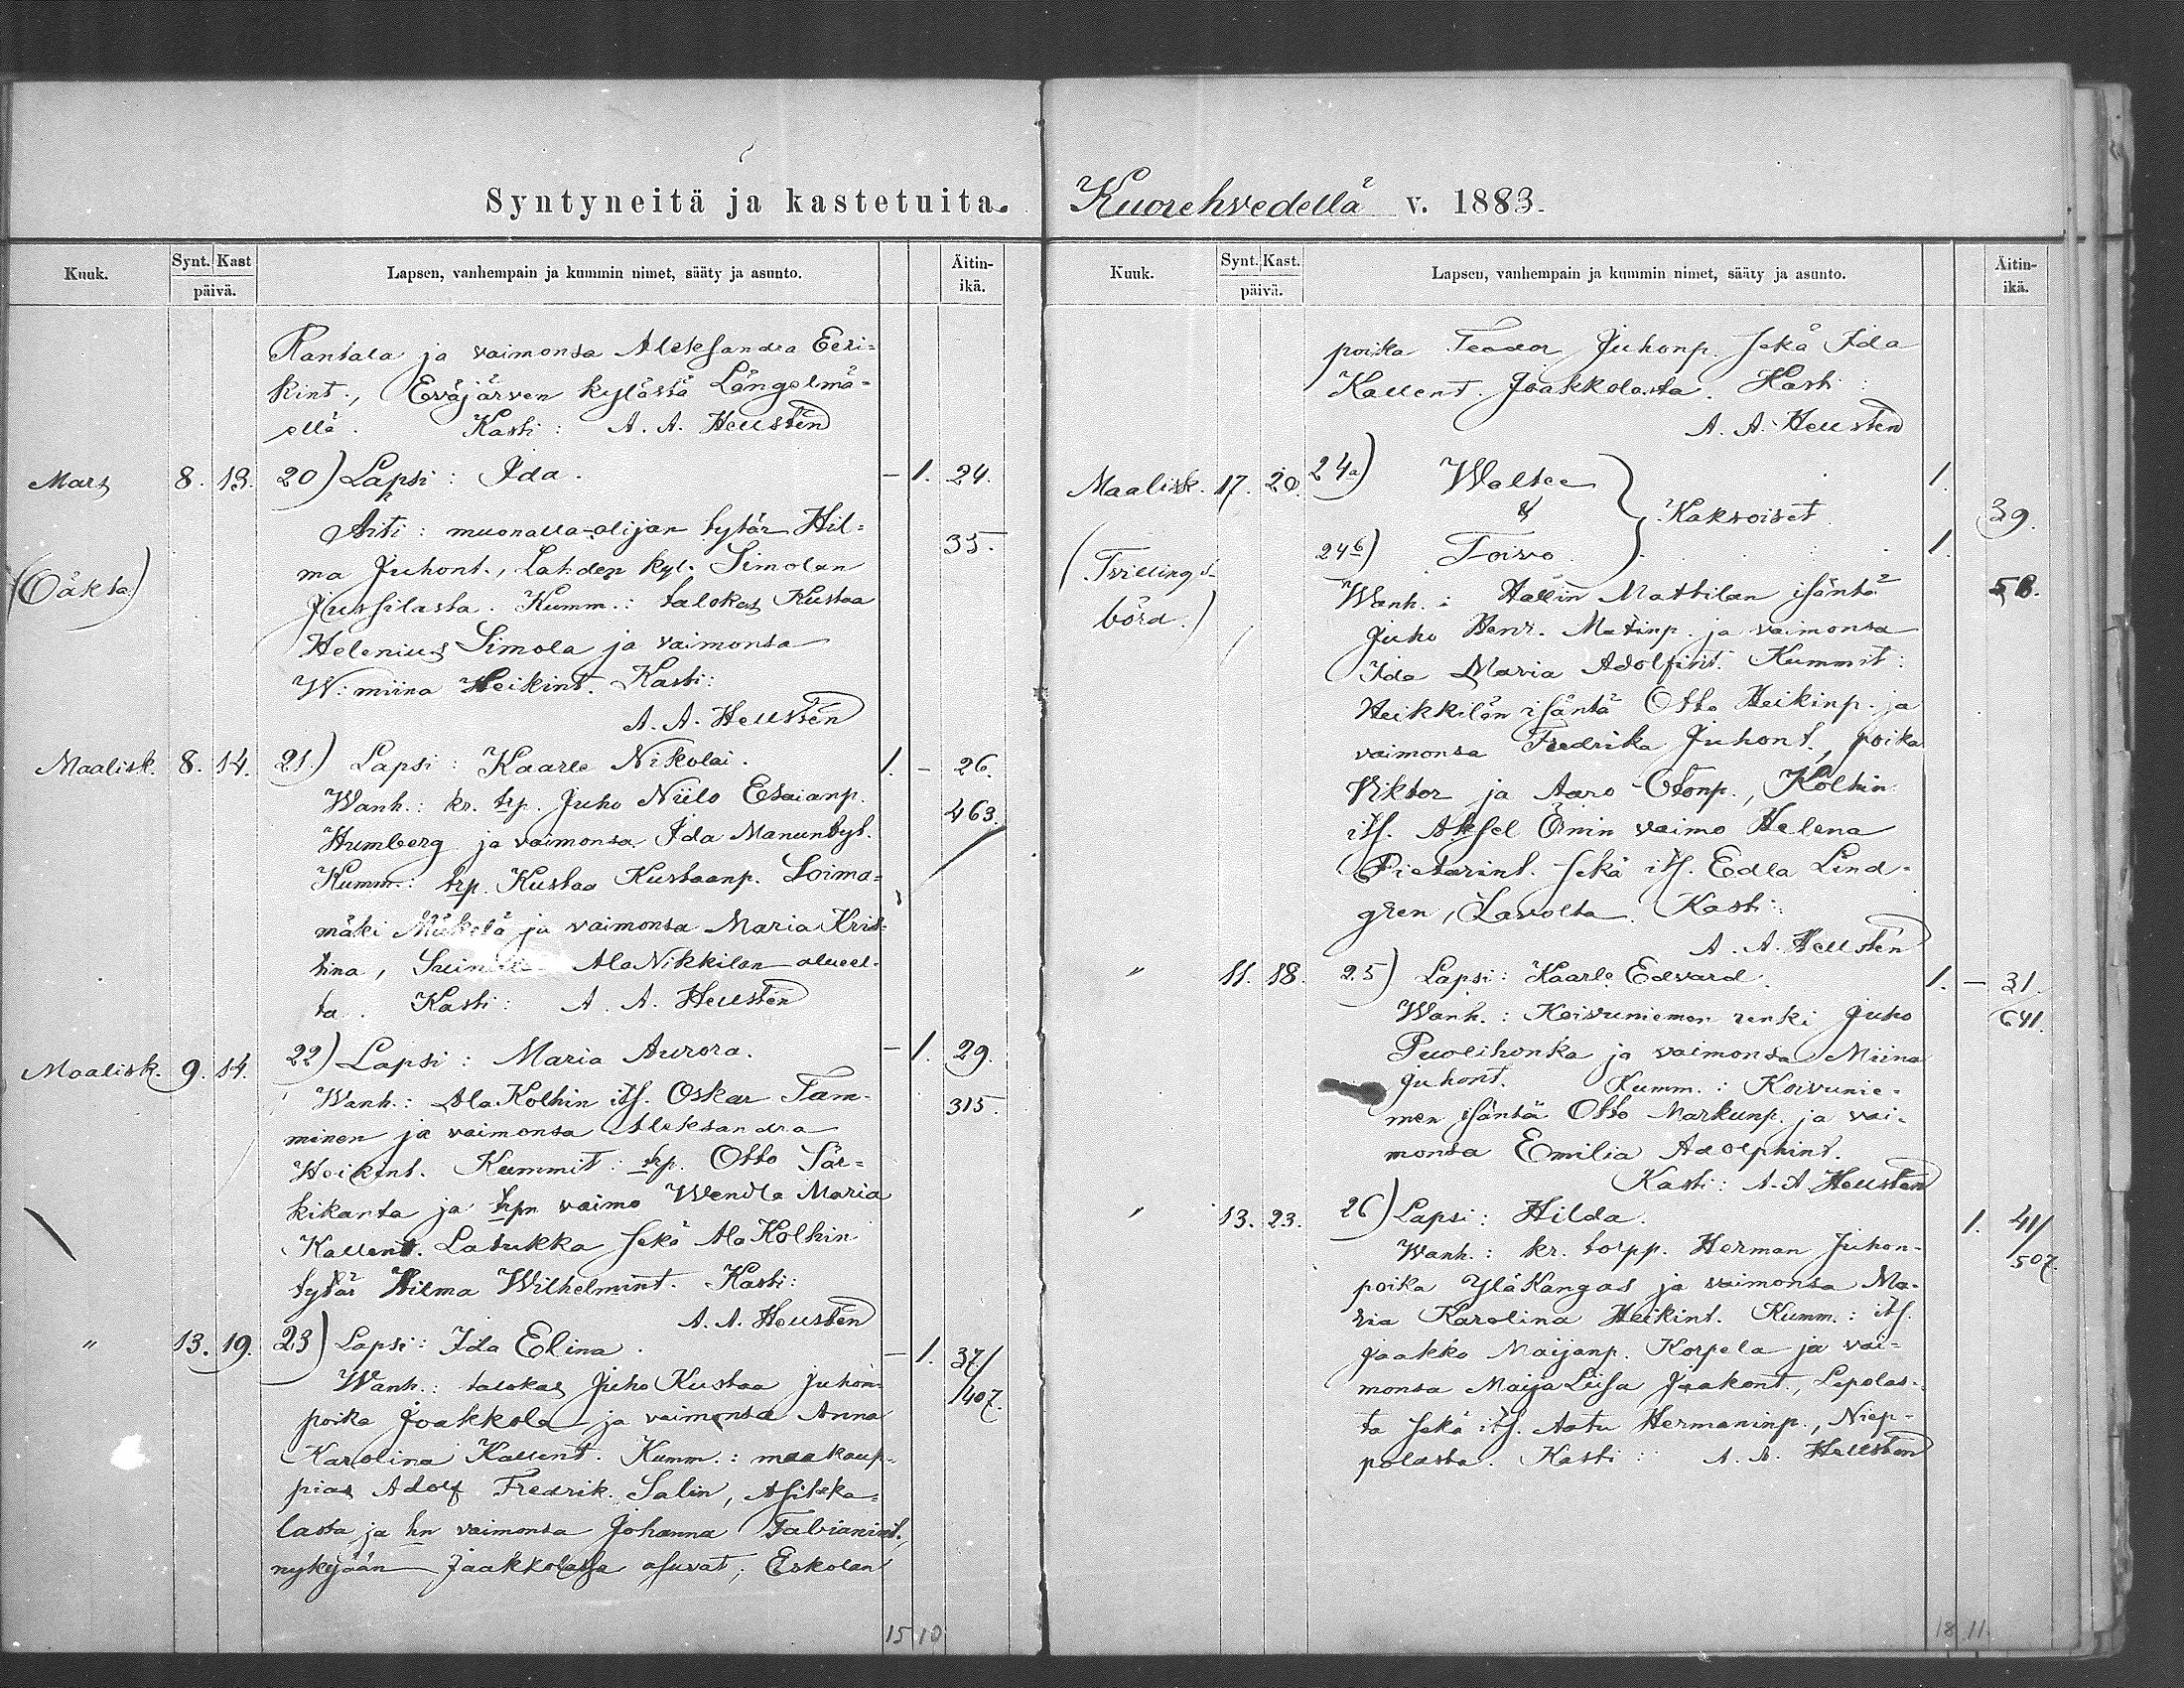 Syntyneitä ja kastetuita.
Kuuk. Synt. Kast päivä. Lapsen, vanhempain ja kummin nimet, sääty ja asunto. Äitin-ikä.
Rantala ja vaimonsa Aleksandra Eeri=
kint., Eväjärven kylässä Längelmä=
ellä. Kasti: A. A. Hellstén
Mars 8. 13. 20) Lapsi: Ida. – 1. 24.
Äiti: muonalla-olijan tytär Hil= 35.
(Oäkta) ma Juhont., Lahden kyl. Simolan
Jussilasta. Kumm.: talokas Kustaa
Helenius Simola ja vaimonsa
W:miina Heikint. Kasti:
A. A. Hellstén
Maalisk. 8. 14. 21.) Lapsi: Kaarle Nikolai. 1. – 26.
Wanh.: kr. trp. Juho Niilo Esaianp. 463.
Humberg ja vaimonsa Ida Manuntyt.
Kumm.: trp. Kustaa Kustaanp. Loima=
mäki Mäkelä ja vaimonsa Maria Kris=
tina, AlaNikkilan alueel-
ta. Kasti: A. A. Hellstén
Maalisk. 9. 14. 22) Lapsi: Maria Aurora. – 1. 29.
Wanh.: AlaKolhin its. Oskar Tam- 315.
minen ja vaimonsa Aleksandra
Heikint. Kummit: trp. Otto Sär=
kikanta ja trpn vaimo Wendla Maria
Kallent. Latukka sekä AlaKolhin
tytär Hilma Wilhelmint. Kasti:
A. A. Hellstén
" 13. 19. 23) Lapsi: Ida Elina. – 1. 37/
Wanh.: talokas Juho Kustaa Juhon- 407.
poika Jaakkola ja vaimonsa Anna
Karolina Kallent. Kumm.: maakaup-
pias Adolf Fredrik Salin,
lasta ja hn vaimonsa Johanna Fabianint.,
nykyjään Jaakkolassa asuvat, Eskolan
15 10
Kuorehvedellä v. 1883.
Kuuk. Synt. Kast. päivä. Lapsen, vanhempain ja kummin nimet, sääty ja asunto. Äitin-ikä.
poika Teodor Juhonp. sekä Ida
Kallent. Jaakkolasta. Kasti:
A. A. Hellstén
Maalisk. 17. 20. 24a) Walter 1.
& Kaksoiset 39.
(Tvillings- 24b) Toivo. 1.
börd.) Wanh.: Hallin Mattilan isäntä 58.
Juho Henr. Matinp. ja vaimonsa
Ida Maria Adolfint. Kummit:
Heikkilän isäntä Otto Heikinp. ja
vaimonsa Fredrika Juhont., poika
Viktor ja Aaro Otonp., Kolhin
its. Aksel Önin vaimo Helena
Pietarint. sekä its. Edla Lind-
gren, Kasti:
A. A. Hellstén
" 11. 18. 25) Lapsi: Kaarle Edvard. 1. – 31.
Wanh.: Koivuniemen renki Juho 641.
Puolihonka ja vaimonsa Miina
Juhont. Kumm.: Koivunie-
men isäntä Otto Markunp. ja vai-
monsa Emilia Adolphint.
Kasti: A. A. Hellstén
" 13. 23. 26) Lapsi: Hilda. 1. 41/
Wanh.: kr. torpp. Herman Juhon- 507.
poika YläKangas ja vaimonsa Ma-
ria Karolina Heikint. Kumm.: its.
Jaakko Maijanp. Korpela ja vai-
monsa MaijaLiisa Jaakont., Lepolas-
ta sekä its. Aatu Hermaninp., Niep-
polasta. Kasti: A. A. Hellstén
18 11.